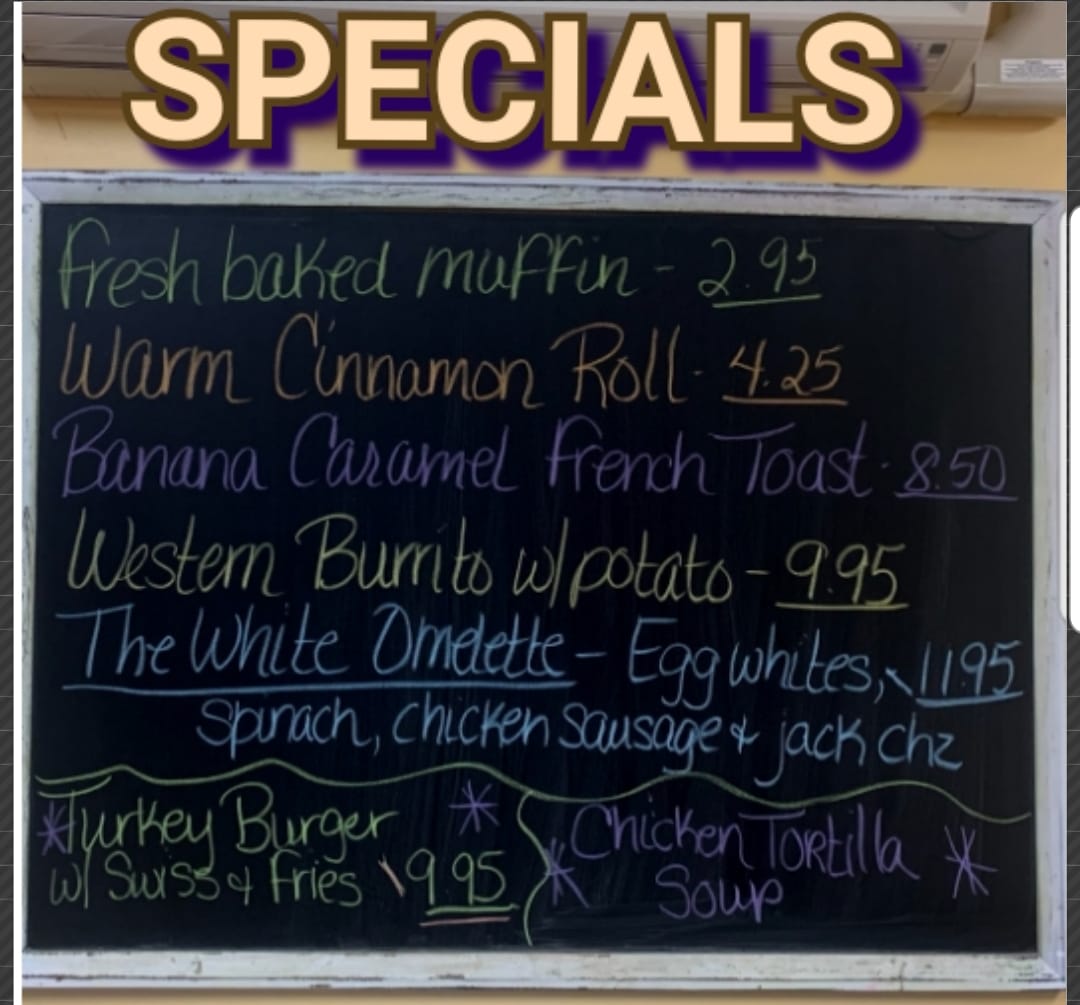 SPECIALS
fresh baked muffin - 2.95
Warm Cinnamon Roll - 4.25
Banana Caramel French Toast - 8.50
Western Burrito w/potato - 9.95
The White Omelette - Egg whites, 11.95
Spinach, chicken sausage & jack chz
*Turkey Burger *
w/ Swiss & fries 9.95
* Chicken Tortilla *
Soup